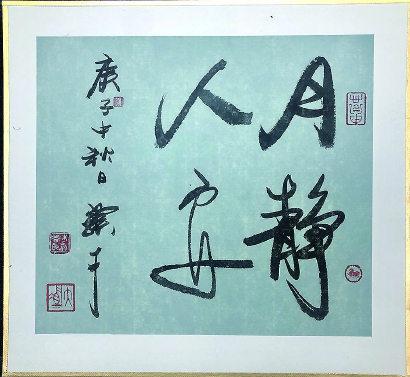 月静
人安
庚子中秋日